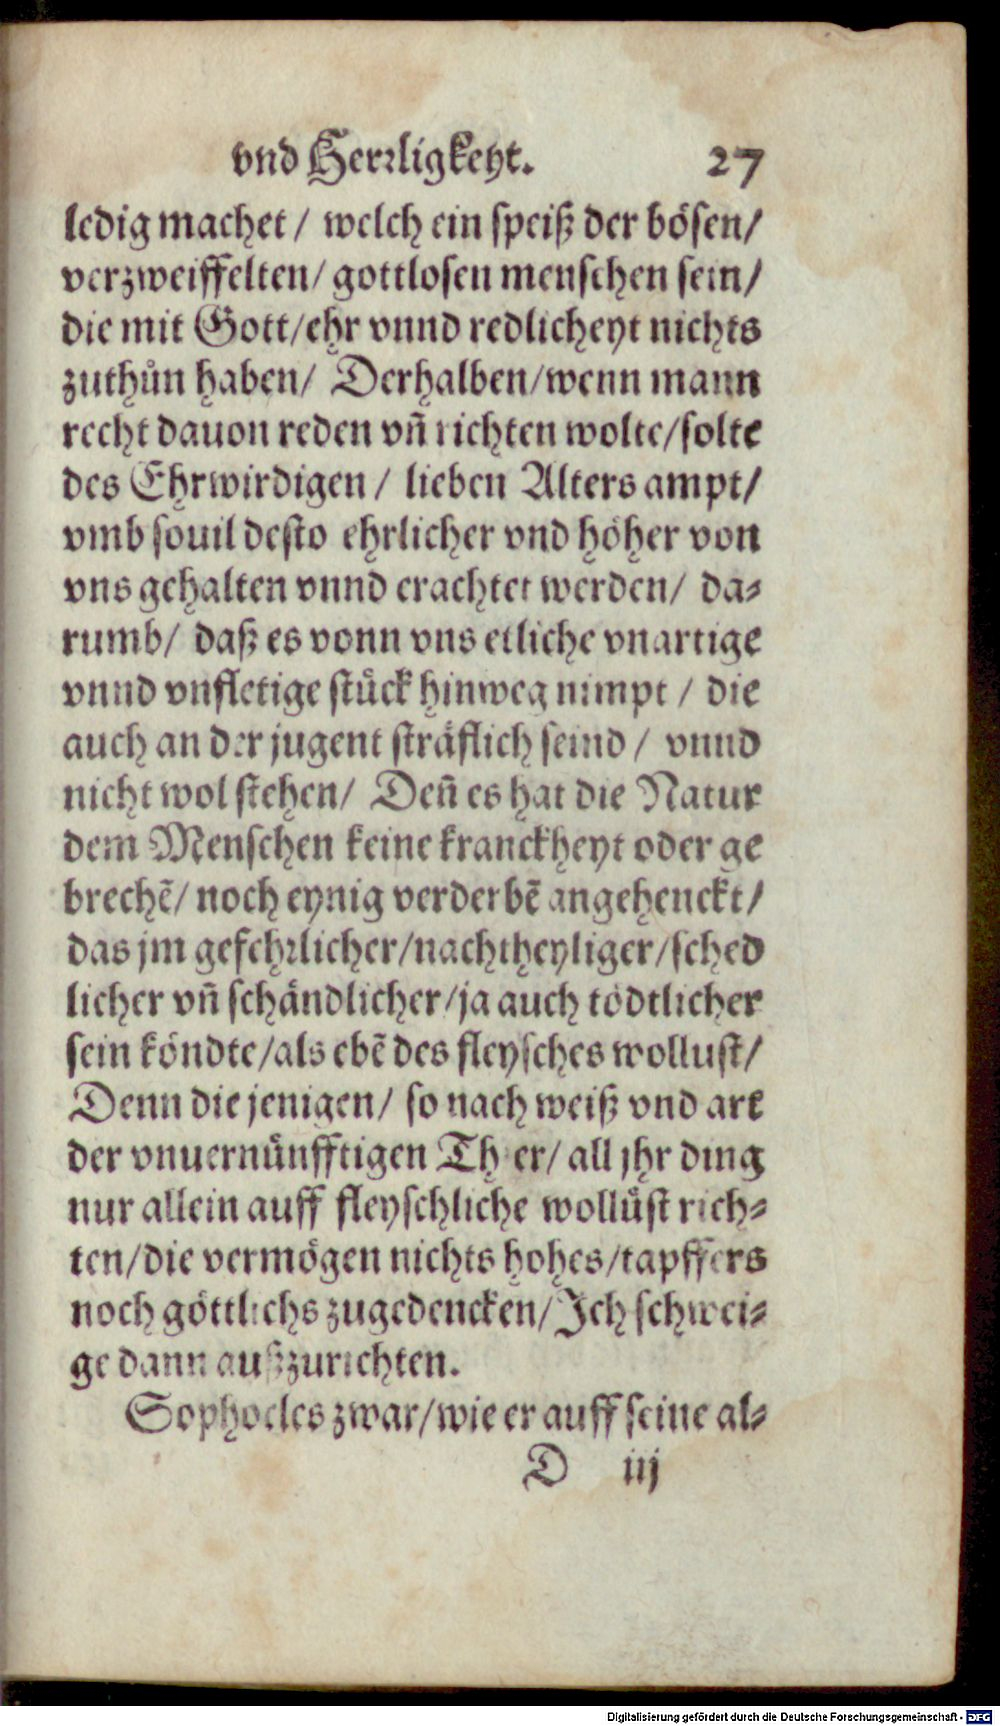 vnd Herꝛligkeyt. 27
ledig machet / welch ein speiß der bösen/
verzweiffelten/ gottlosen menschen sein/
die mit Gott/ehr vnnd redlicheyt nichts
zuthůn haben/ Derhalben/wenn mann
recht dauon reden vñ richten wolte/solte
des Ehrwirdigen / lieben Alters ampt/
vmb souil desto ehrlicher vnd höher von
vns gehalten vnnd erachtet werden/ da-
rumb/ daß es vonn vns etliche vnartige
vnnd vnfletige stück hinweg nimpt / die
auch an der jugent sträflich seind / vnnd
nicht wol stehen/ Deñ es hat die Natur
dem Menschen keine kranckheyt oder ge
brechẽ/ noch eynig verderbẽ angehenckt/
das jm gefehꝛlicher/nachtheyliger/sched
licher vñ schändlicher/ja auch tödtlicher
sein köndte/als ebẽ des fleysches wollust/
Denn die jenigen/ so nach weiß vnd art
der vnuernünfftigen Thier/ all jhr ding
nur allein auff fleyschliche wollüst rich-
ten/die vermögen nichts hohes/tapffers
noch göttlichs zugedencken/Jch schwei-
ge dann außzurichten.
Sophocles zwar/wie er auff seine al-
D iij
Digitalisierung gefördert durch die Deutsche Forschungsgemeinschaft - DFG